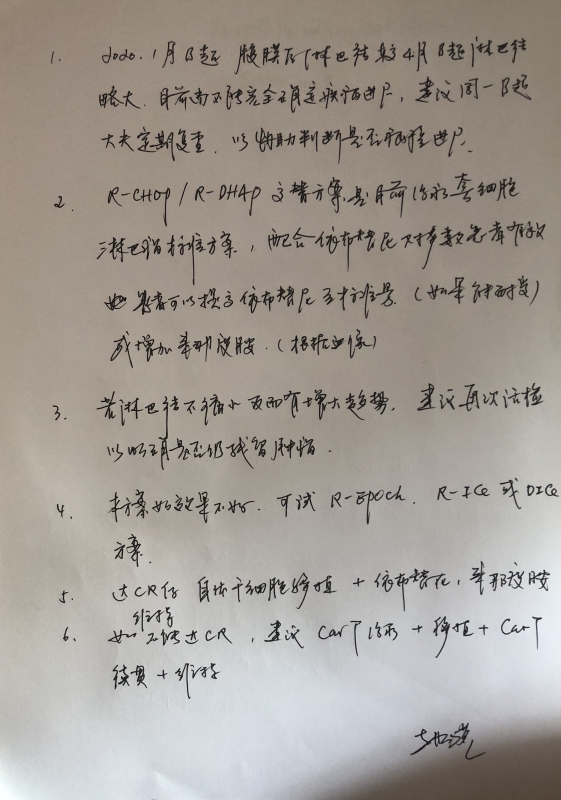 1. 2020.1月B超 腹膜后淋巴结较4月B超淋巴结
略大.目前尚不能完全确定疾病进尸,建议同一B超
大夫定期复查.以帮助判断是否病程进尸.
2. R-CHOP/R-DHAP交替方案是目前治疗套细胞
淋巴瘤标准方案,配合依布替尼对多数患者有效
此患者可以提高依布替尼至标准量.(如果能耐受)
或增加来那度胺.(根据血像)
3. 若淋巴结不缩小反而有增大趋势.建议再次活检
以明确是否仍残留肿瘤.
4. 本方案如效果不好.可试R-EPOCH.R-ICE或DICE
方案.
5. 达CR后 自体干细胞移植+依布替尼,来那度胺
维持
6. 如不能达CR,建议CarT治疗+移植+CarT
续贯+维持